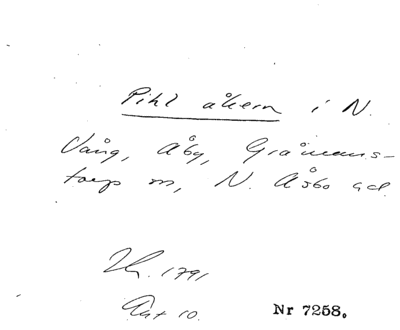 Pihl åkern i N.
Vång, Åby, Gråmans-
torp sn, N. Åsbo hd.
1791
Akt 10.
Nr 7258.